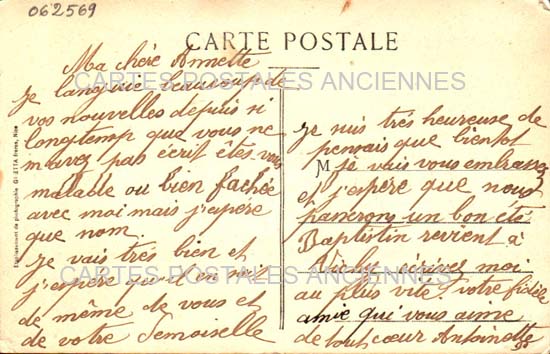 062569
CARTE POSTALE
CARTES POSTALES ANCIENNES
Ma chère Annette
Je languie beaucoup de
vos nouvelles depuis si
longtemp que vous ne
m'avez pas écrit êtes vous
malable ou bien fachée
avec moi mais j'aspére
que nom.
Je vais très bien et
j'aspére qu'il en soit
de même de vous et
de votre Demoiselle
Je suis très heureuse de
pensais que bientot
M
je vais vous embrasser
et j'aspère que nous
passerons un bon été
Baptistin revient à
Vichy écrivez moi
au plus vite. Votre fidèle
amie qui vous aime
de tout cœur Antoinette
CARTES POSTALES ANCIENNES
CARTES POSTALES ANCIENNES
de photographie GILETTA frères, Nice